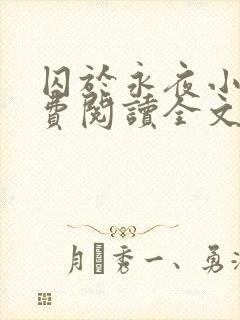 囚於永夜小
費閱讀全文
月秀一、勇